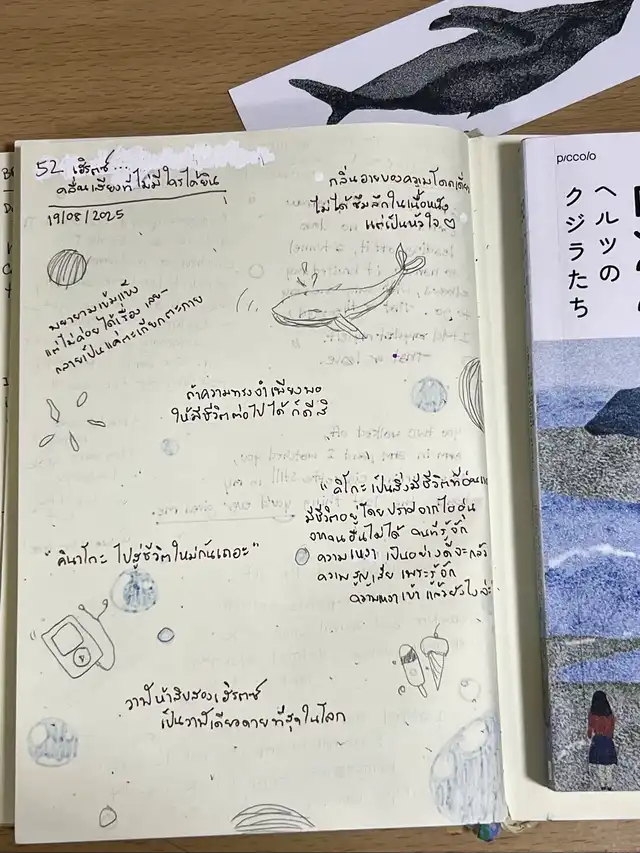 52 เฮิรตซ์...
คลื่นเสียงที่ไม่มีใครได้ยิน
19/08/2025
กลิ่นอายของความโดดเดี่ยว
ไม่ได้ซึมลึกในเนื้อหนัง
แต่เป็นหัวใจ ♡
พยายามเข้มแข็ง
แต่ไม่ค่อยได้เรื่อง เลย
กลายเป็นแค่ตะเกียกตะกาย
ถ้าความทรงจำเพียงพอ
ให้มีชีวิตต่อไปได้ ก็ดีสิ
"คิโกะ เป็นสิ่งมีชีวิตที่อ่อนแ
มีชีวิตอยู่โดยปราศจากไออุ่น
จากคนอื่นไม่ได้ คนที่รู้จัก
ความเหงา เป็นอย่างดีจะกลัว
ความสูญเสีย เพราะรู้จัก
ความเหงาเข้า แล้วยังไงล่ะ
"คินาโกะ ไปสู่ชีวิตใหม่กันเถอะ"
วาฬห้าสิบสองเฮิรตซ์
เป็นวาฬเดียวดายที่สุดในโลก
piccolo
ヘルツの
クジラたち